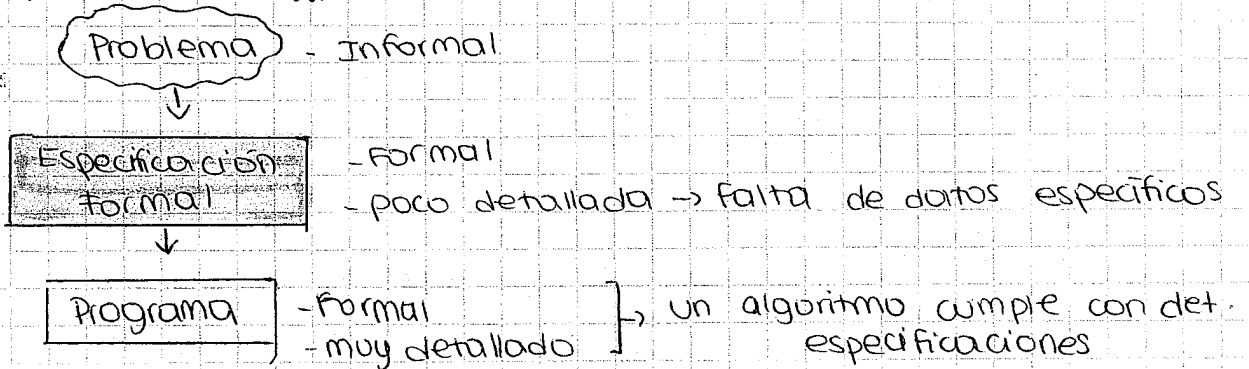 Problema - Informal
Especificación - Formal
formal - poco detallada → falta de datos específicos
Programa - Formal → un algoritmo cumple con det.
- muy detallado especificaciones